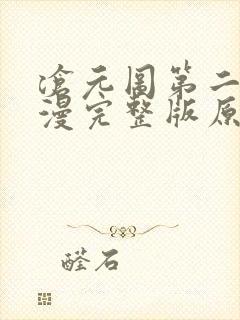 沧元图第二
漫完整版原
醛石